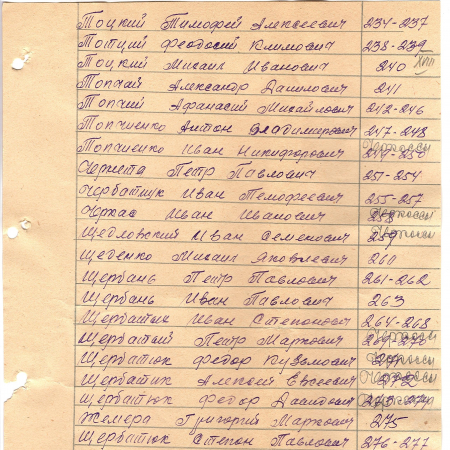 Тоцкий Тимофей Алексеевич 234-237
Потций Феодосий Климович 238-239
Тоцкий Михаил Иванович 240
Топчий Александр Данилович 241
Топчий Афанасий Михайлович 242-246
Топчиенко Антон Владимирович 247-248
Топчиенко Иван Никифорович 249-250
Петр Павлович 251-254
Иван Тимофеевич 255-257
Иван Иванович 258
Щедловский Иван Семенович 259
Щеденко Михаил Яковлевич 260
Щербань Петр Павлович 261-262
Щербань Иван Павлович 263
Щербатюк Иван Степанович 264-268
Щербатый Петр Маркович
Щербатюк Федор
Щербатюк Алексей Евсеевич
Щербатюк Федор Данилович
Жемера Григорий Маркович 275
Щербатюк Степан Павлович 276-277